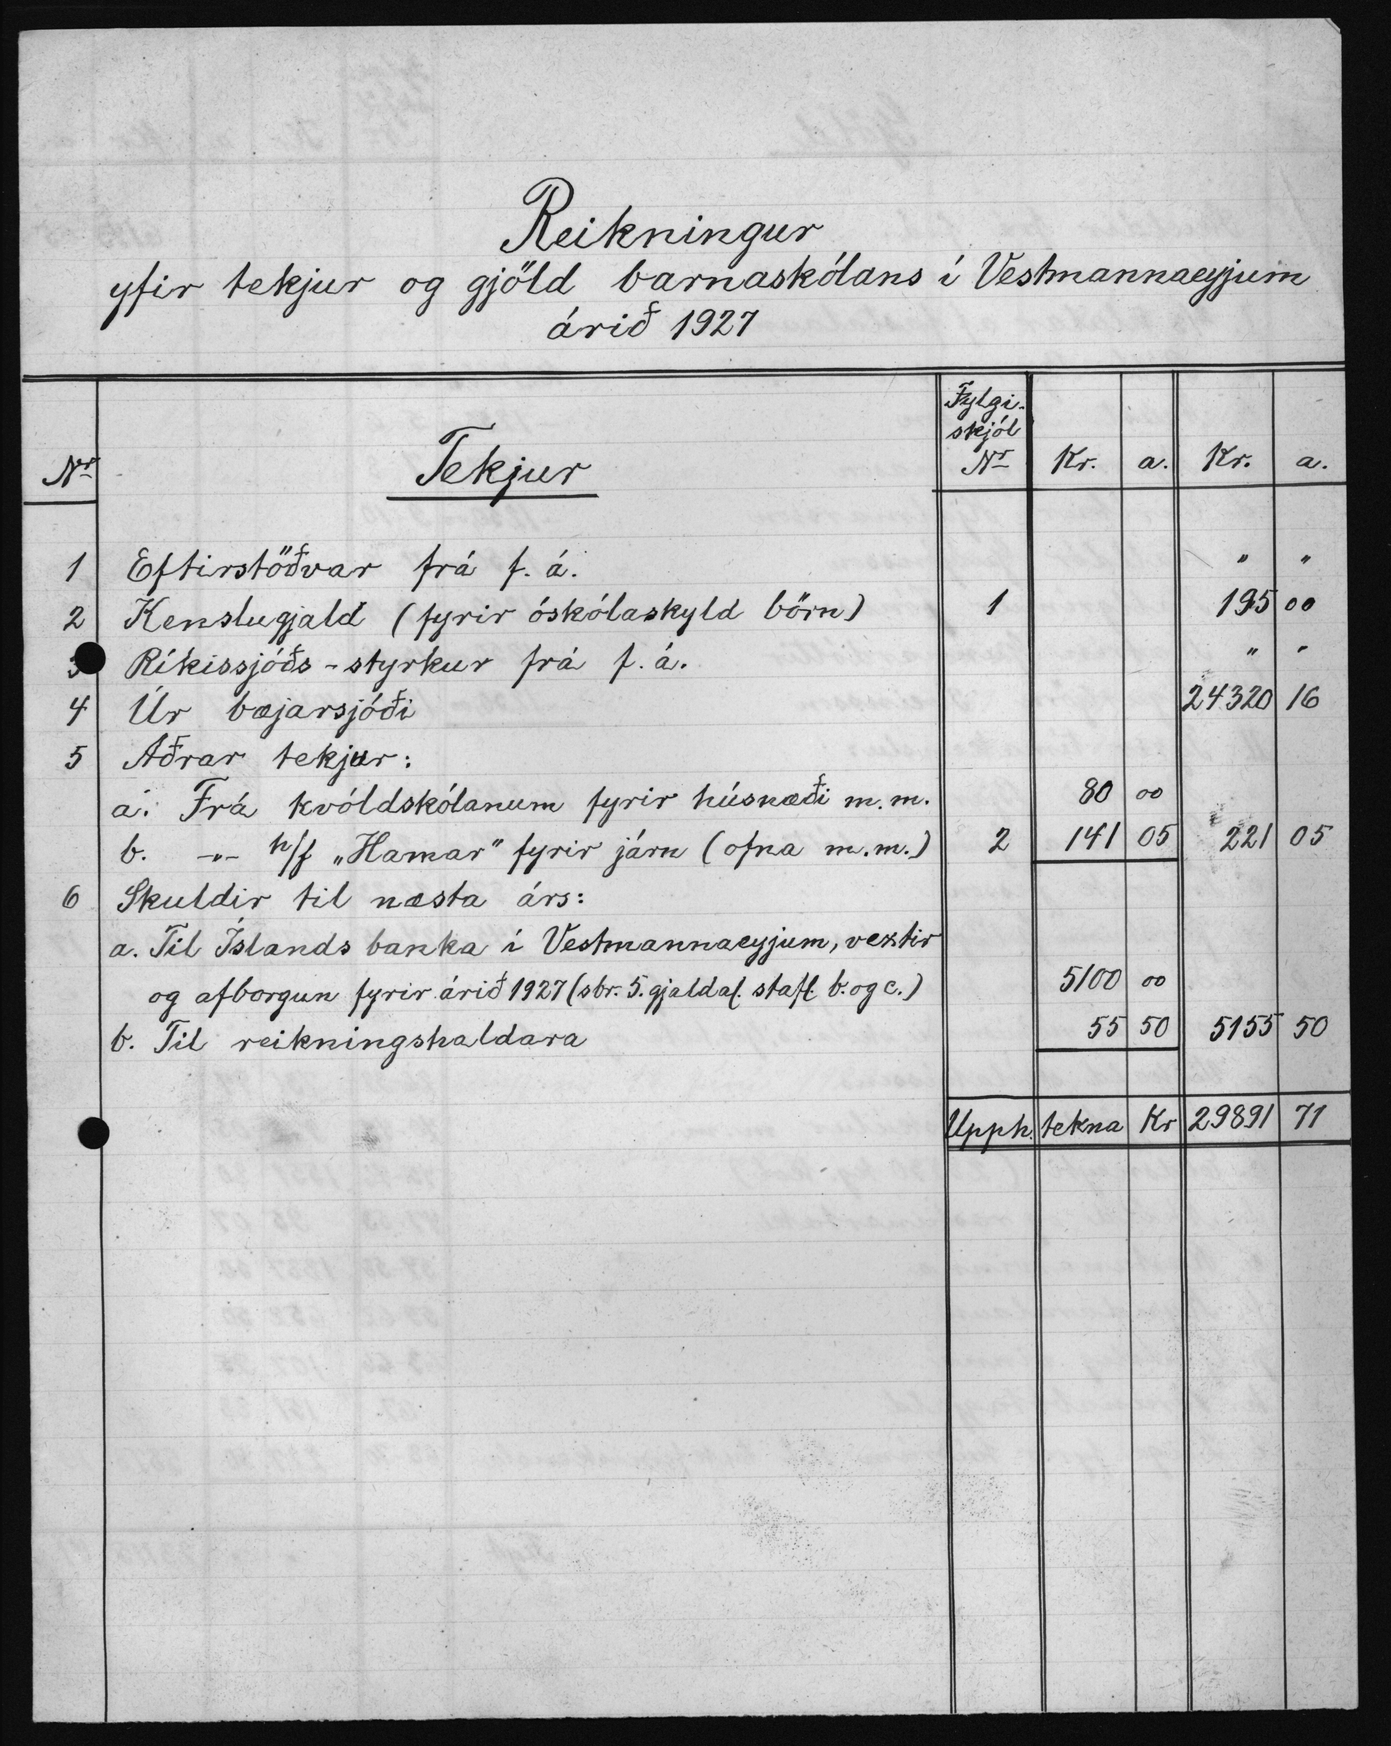 Reikningur
yfir tekjur og gjöld barnaskólans í Vestmannaeyjum
árið 1927
Nr Tekjur Fylgi-skjöl Nr Kr. a. Kr. a.
1 Eftirstöðvar frá f. á. " "
2 Kenslugjald (fyrir óskólaskyld börn) 1 195 00
3 Ríkissjóðs-styrkur frá f. á. " "
4 Úr bæjarsjóði 24320 16
5 Aðrar tekjur:
a. Frá kvöldskólanum fyrir húsnæði m.m. 80 00
b. -"- h/f „Hamar" fyrir járn (ofna m.m.) 2 141 05 221 05
6 Skuldir til næsta árs:
a. Til Íslands banka í Vestmannaeyjum, vextir
og afborgun fyrir árið 1927 (sbr. 5. gjaldal. stafl. b. og c.) 5100 00
b. Til reikningshaldara 55 50 5155 50
Upph. tekna Kr 29891 71